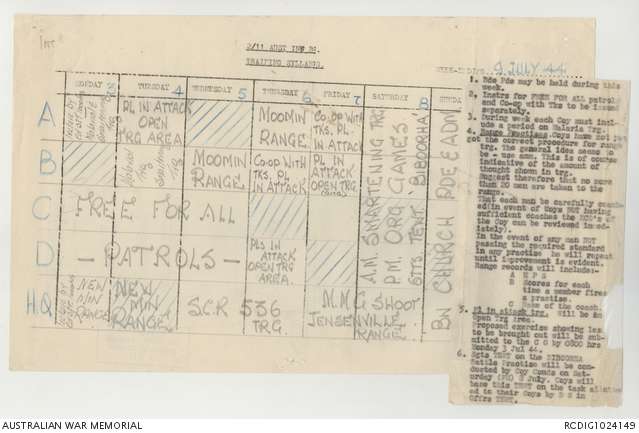 2/11 AUST INF BN.
TRAINING SYLLABUS.
9 JULY 44
MONDAY 3
TUESDAY 4
WEDNESDAY 5
THURSDAY 6
FRIDAY 7
SATURDAY 8
SUNDAY
A
PL IN ATTACK
OPEN
TRG AREA
MOOMIN
RANGE
CO-OP WITH
TKS. PL
IN ATTACK
B
MOOMIN
RANGE
CO-OP WITH
TKS. PL
IN ATTACK
PL IN
ATTACK
OPEN TRG
C
FREE FOR ALL
D
- PATROLS -
PLS IN
ATTACK
OPEN TRG
AREA
H.Q.
NEW
MIN
RANGE
NEW
MIN
RANGE
S.C.R 536
TRG
M.M.G SHOOT
JENSENVILLE
RANGE
A.M. SMARTENING TRG
P.M. ORG GAMES
STTS TEWT. BIBOORHA
BN CHURCH PDE & ADM
1. Bde Pde may be held during this
week.
2. Instrs for FREE FOR ALL patrols
and Co-op with Tks to be issued
separately.
3. During week each Coy must incl-
ude a period on Malaria Trg.
4. Range Practices. Coys have not
got the correct procedure for range
trg. The general idea seems to
be - use amn. This is of course
indicative of the amount of
thought shown in trg.
Suggest therefore that no more
than 20 men are taken to the
range.
That each man be carefully
(in event of Coys NOT having
sufficient coaches the
the Coy can be reviewed immed-
iately).
In the event of any man NOT
passing the required standard
in any practise he will repeat
until improvement is evident.
Range records will include:-
A E P S
B Scores for each
time a member fires
a practise.
C Name of the coach
5. Pl in attack trg. will be in
Open Trg Area.
Proposed exercise showing
to be brought out will be sub-
mitted to the C O by 0800 hrs
Monday 3 Jul 44.
6. Sgts TEWT on the BIBOORHA
Battle Practise will be con-
ducted by Coy Comds on Sat-
urday (PM) 8 July. Coys will
base this TEWT on the task allotted
ed to their Coys by B G in
Offrs TEWT.
AUSTRALIAN WAR MEMORIAL
RCDIG1024149